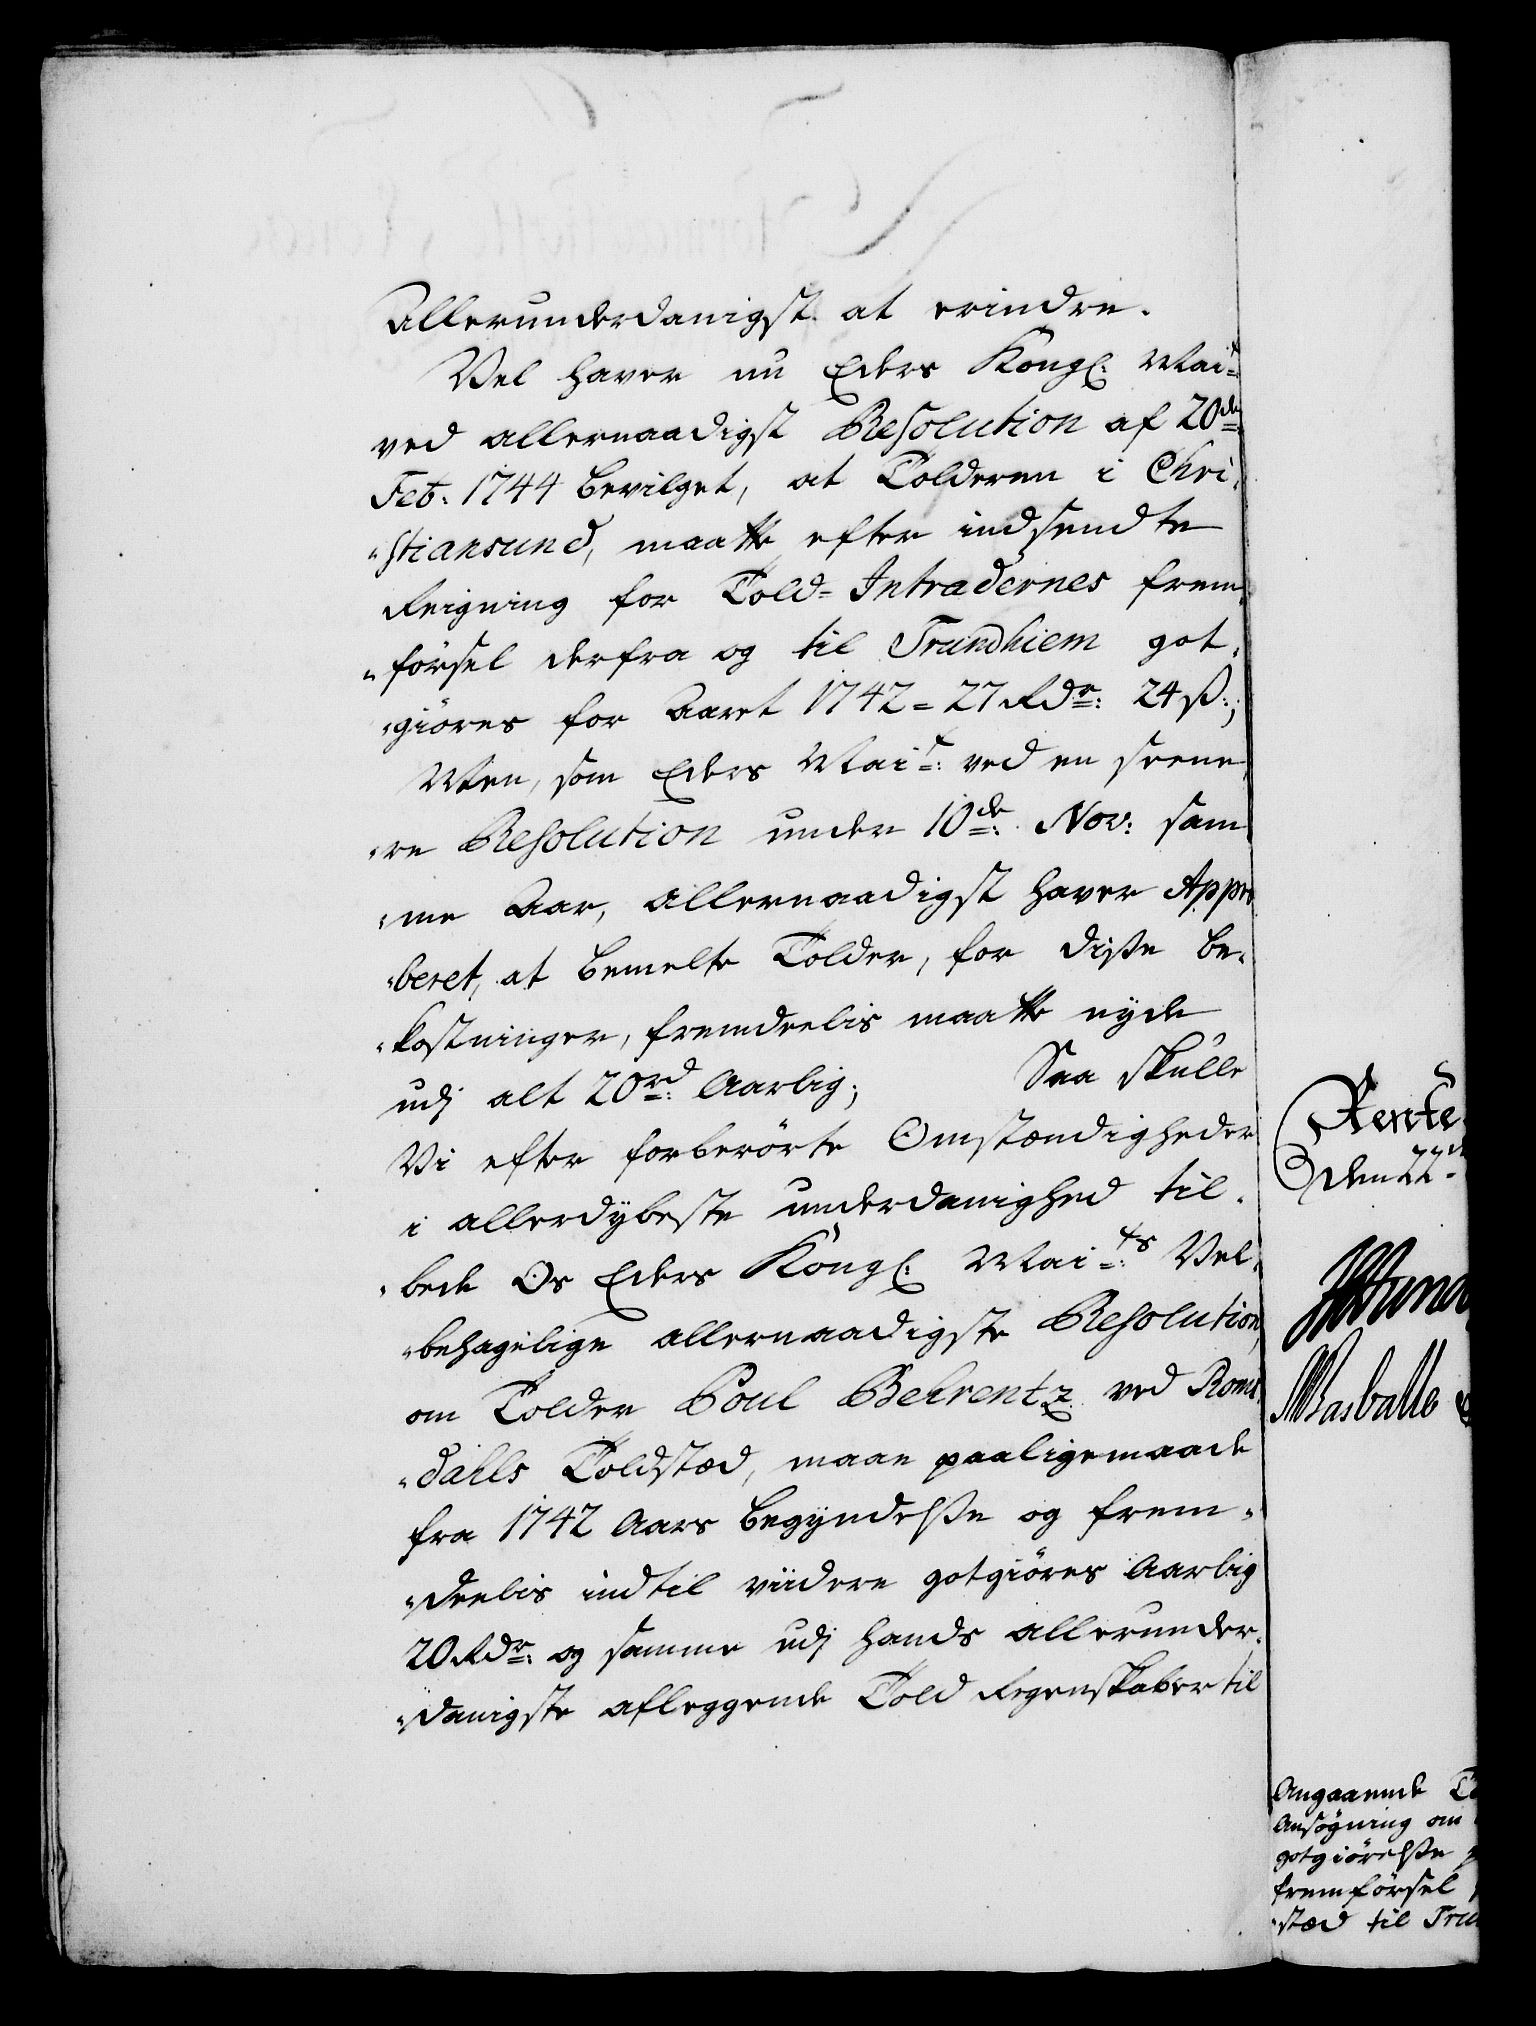 Allerunderdanigst at erindre.
Vel haver nu Eders Kongl: Mait:
ved allernaadigst Resolution af 20de:
Feb: 1744 bevilget, at Tolderen i Chri-
-stiansund, maatte efter indsendte
Reigning for Told-Intradernes frem-
-försel derfra og til Trundhiem got-
-giöres for Aaret 1742 = 27 Rdr: 24 ß:;
Men, som Eders Mait: ved en seene-
-re Resolution under 10de: Nov: sam-
-me Aar, allernaadigst haver Appro-
-beret, at bemelte Tolder, for disse be-
-kostninger, fremdeelis maatte nyde
udj alt 20rd: Aarlig; Saa skulle
Vi efter forberörte Omstændigheder
i allerdybeste underdanighed til-
-bede Os Eders Kongl: Maits: Vel-
-behagelige allernaadigste Resolution,
om Tolder Poul Behrentz ved Roms-
-dahls Toldsted, maae paaligemaade
fra 1742 Aars begyndelse og frem-
-deelis indtil viidere gotgiöres Aarlig
20 Rdr: og samme udj hands allerunder-
-danigste aflæggende Told Regenskaber til
Rente
den 22
Angaaende
Ansögning om
gotgiörelse
fremförsel
-sted til Tru